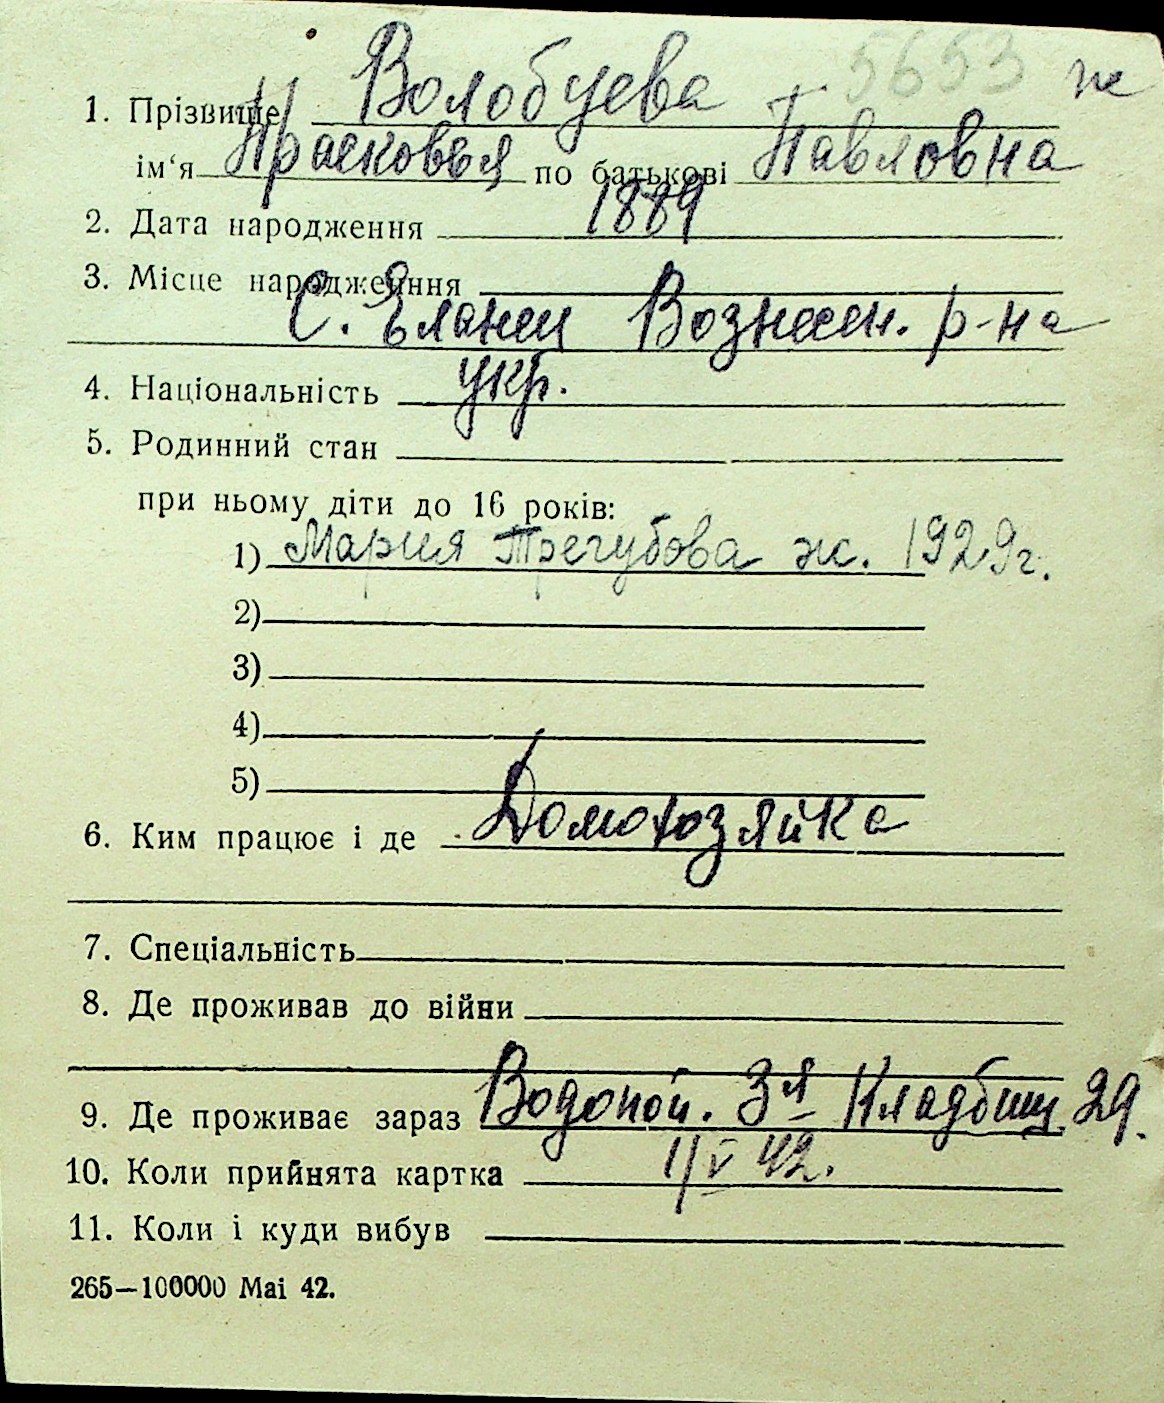 5653 ж
1. Прізвище Волобуева
ім‘я Прасковья по батькові Павловна
2. Дата народження 1889
3. Місце народження
С. Еланец Вознесен. р-на
4. Національність укр.
5. Родинний стан
при ньому діти до 16 років:
1) Мария Трегубова ж. 1929г.
2)
3)
4)
5)
6. Ким працює і де Домохозяйка
7. Спеціальність
8. Де проживав до війни
9. Де проживає зараз Водопой. 3я Кладбищ. 29.
10. Коли прийнята картка 1/V 42.
11. Коли і куди вибув
265—100000 Mai 42.